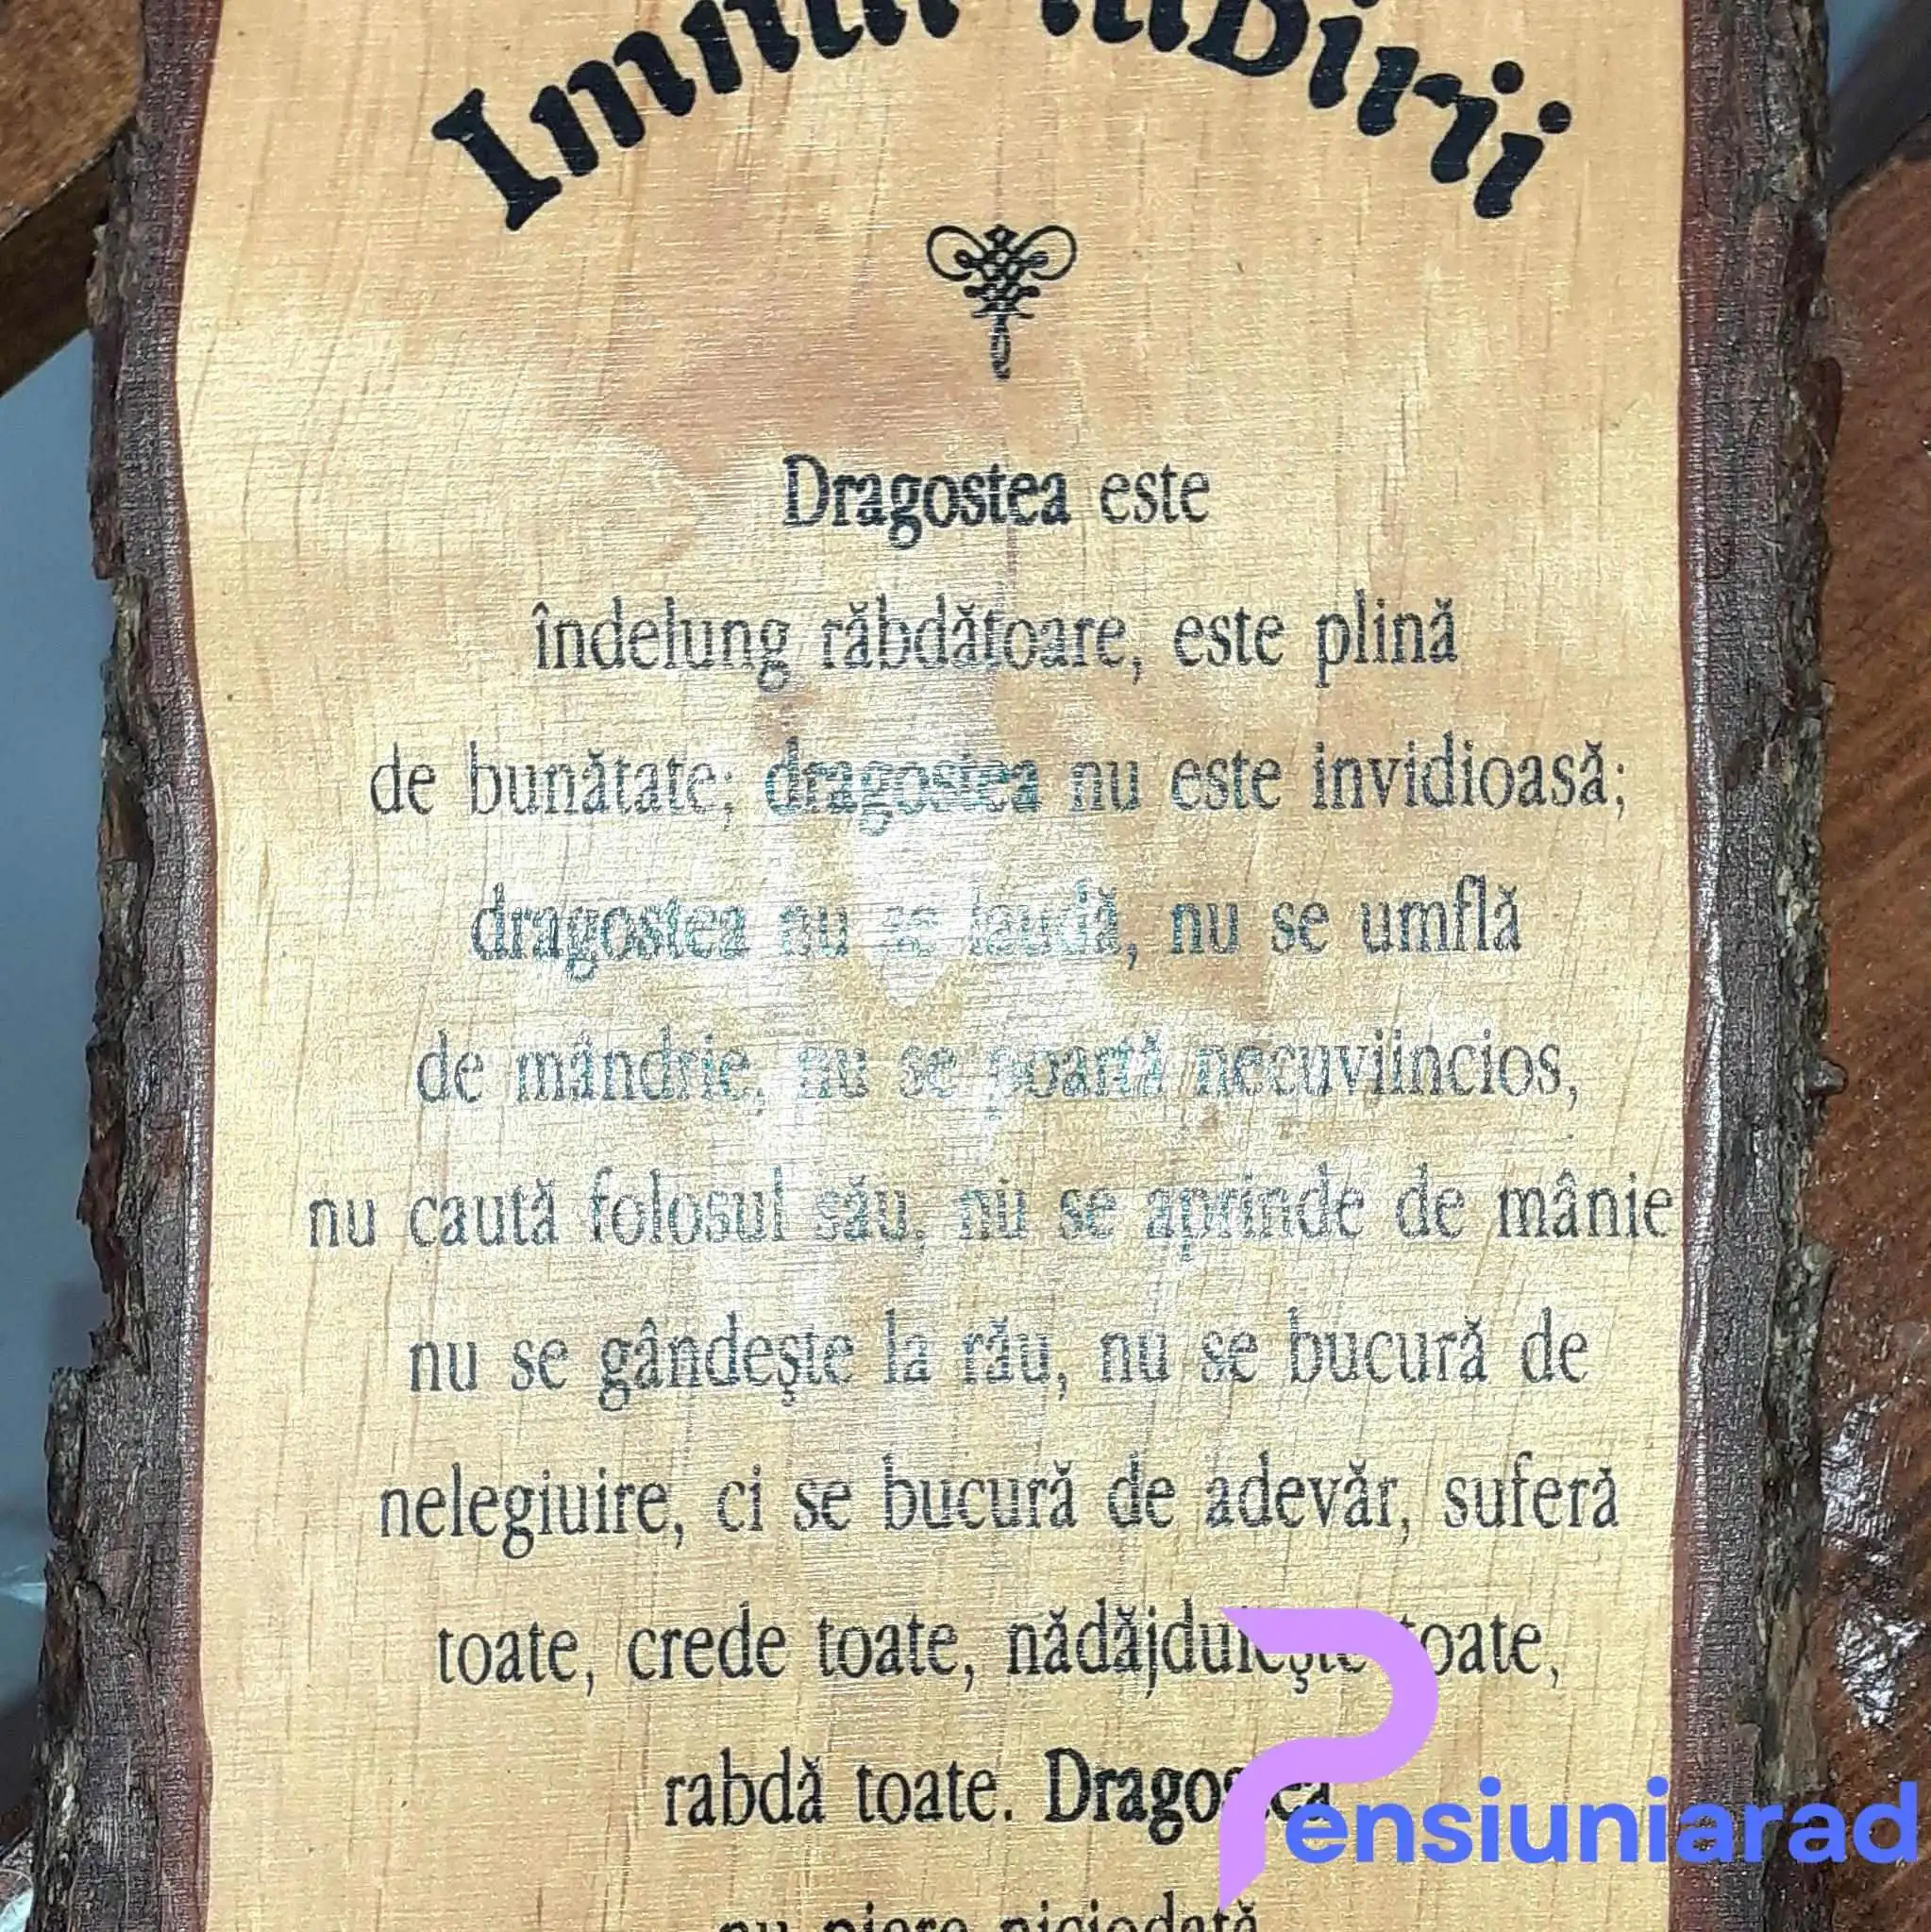 Imnul iubirii
Dragostea este
îndelung răbdătoare, este plină
de bunătate; dragostea nu este invidioasă;
dragostea nu se laudă, nu se umflă
de mândrie, nu se poartă necuviincios,
nu caută folosul său, nu se aprinde de mânie
nu se gândeşte la rău, nu se bucură de
nelegiuire, ci se bucură de adevăr, suferă
toate, crede toate, nădăjduieşte toate,
rabdă toate. Dragostea
nu piere niciodată
Pensiuniarad